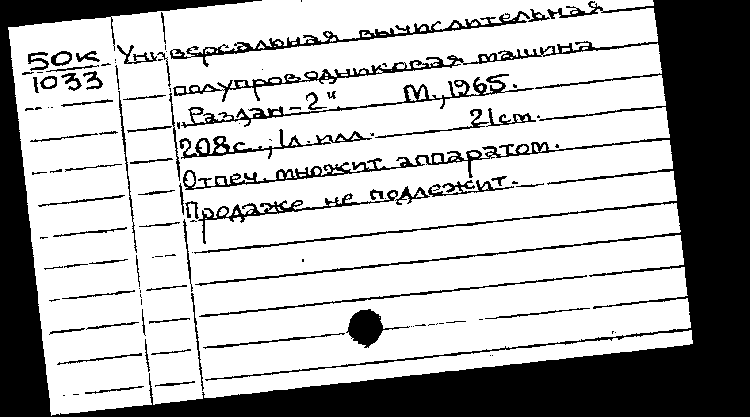 50К Универсальная вычислительная
1033 полупроводниковая машина
„Раздан-2“. М., 1965.
208с.; 1л. илл. 21см.
Отпеч. множит. аппаратом.
Продаже не подлежит.